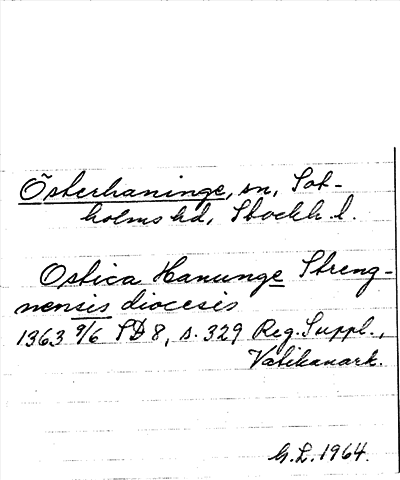 Österhaninge, sn, Sot-
holms hd, Stockh. l.
Ostica Hanunge Streng-
nensis diocesis
1363 9/6 SD 8, s. 329 Reg. Suppl.,
Vatikanark.
G.L. 1964.